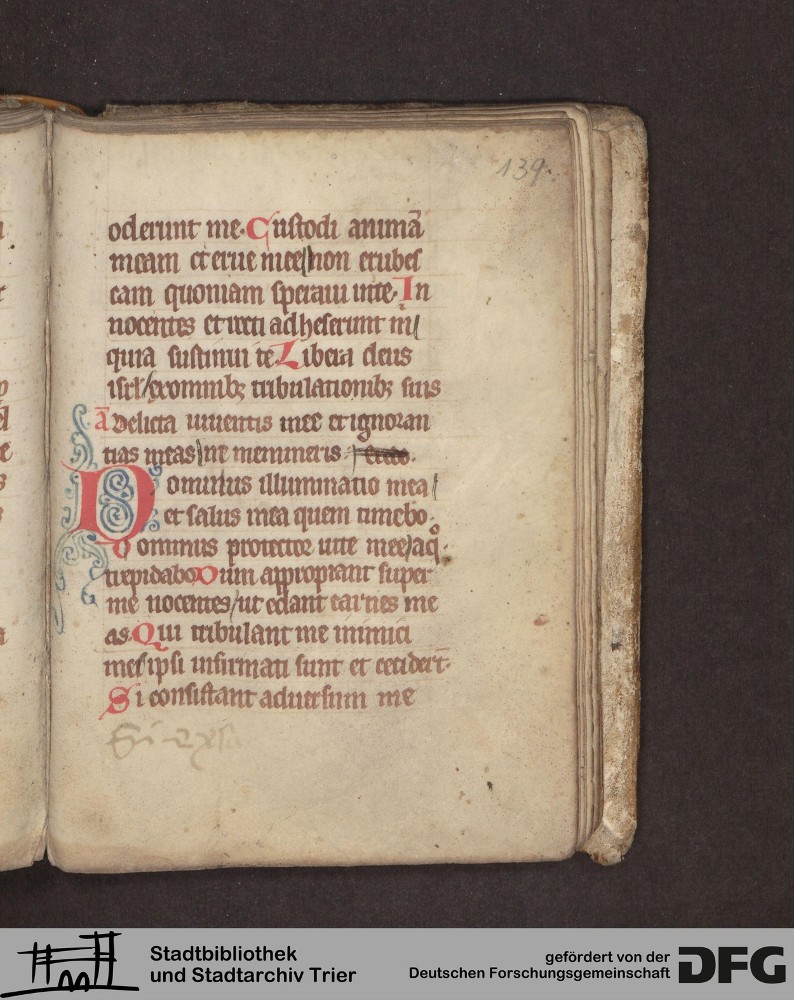 139.
oderunt me. Custodi animā
meam et erue me / non erubes
cam quoniam speraui inte. In
nocentes et recti adheserunt m /
quia sustinui te Libera deus
isrl / exomnibꝫ tribulationibꝫ suis
ā Delicta iuuentis mee et ignoran
tias meas / ne memineris.
Dominus illuminatio mea /
et salus mea quem timebo.
Dominus protector uite mee / a q̊
trepidabo Dum appropiant super
me nocentes / ut edant carnes me
as. Qui tribulant me inimici
mei ipsi infirmati sunt et cecider̄t.
Si consistant aduersum me
Stadtbibliothek
und Stadtarchiv Trier
gefördert von der
Deutschen Forschungsgemeinschaft
DFG